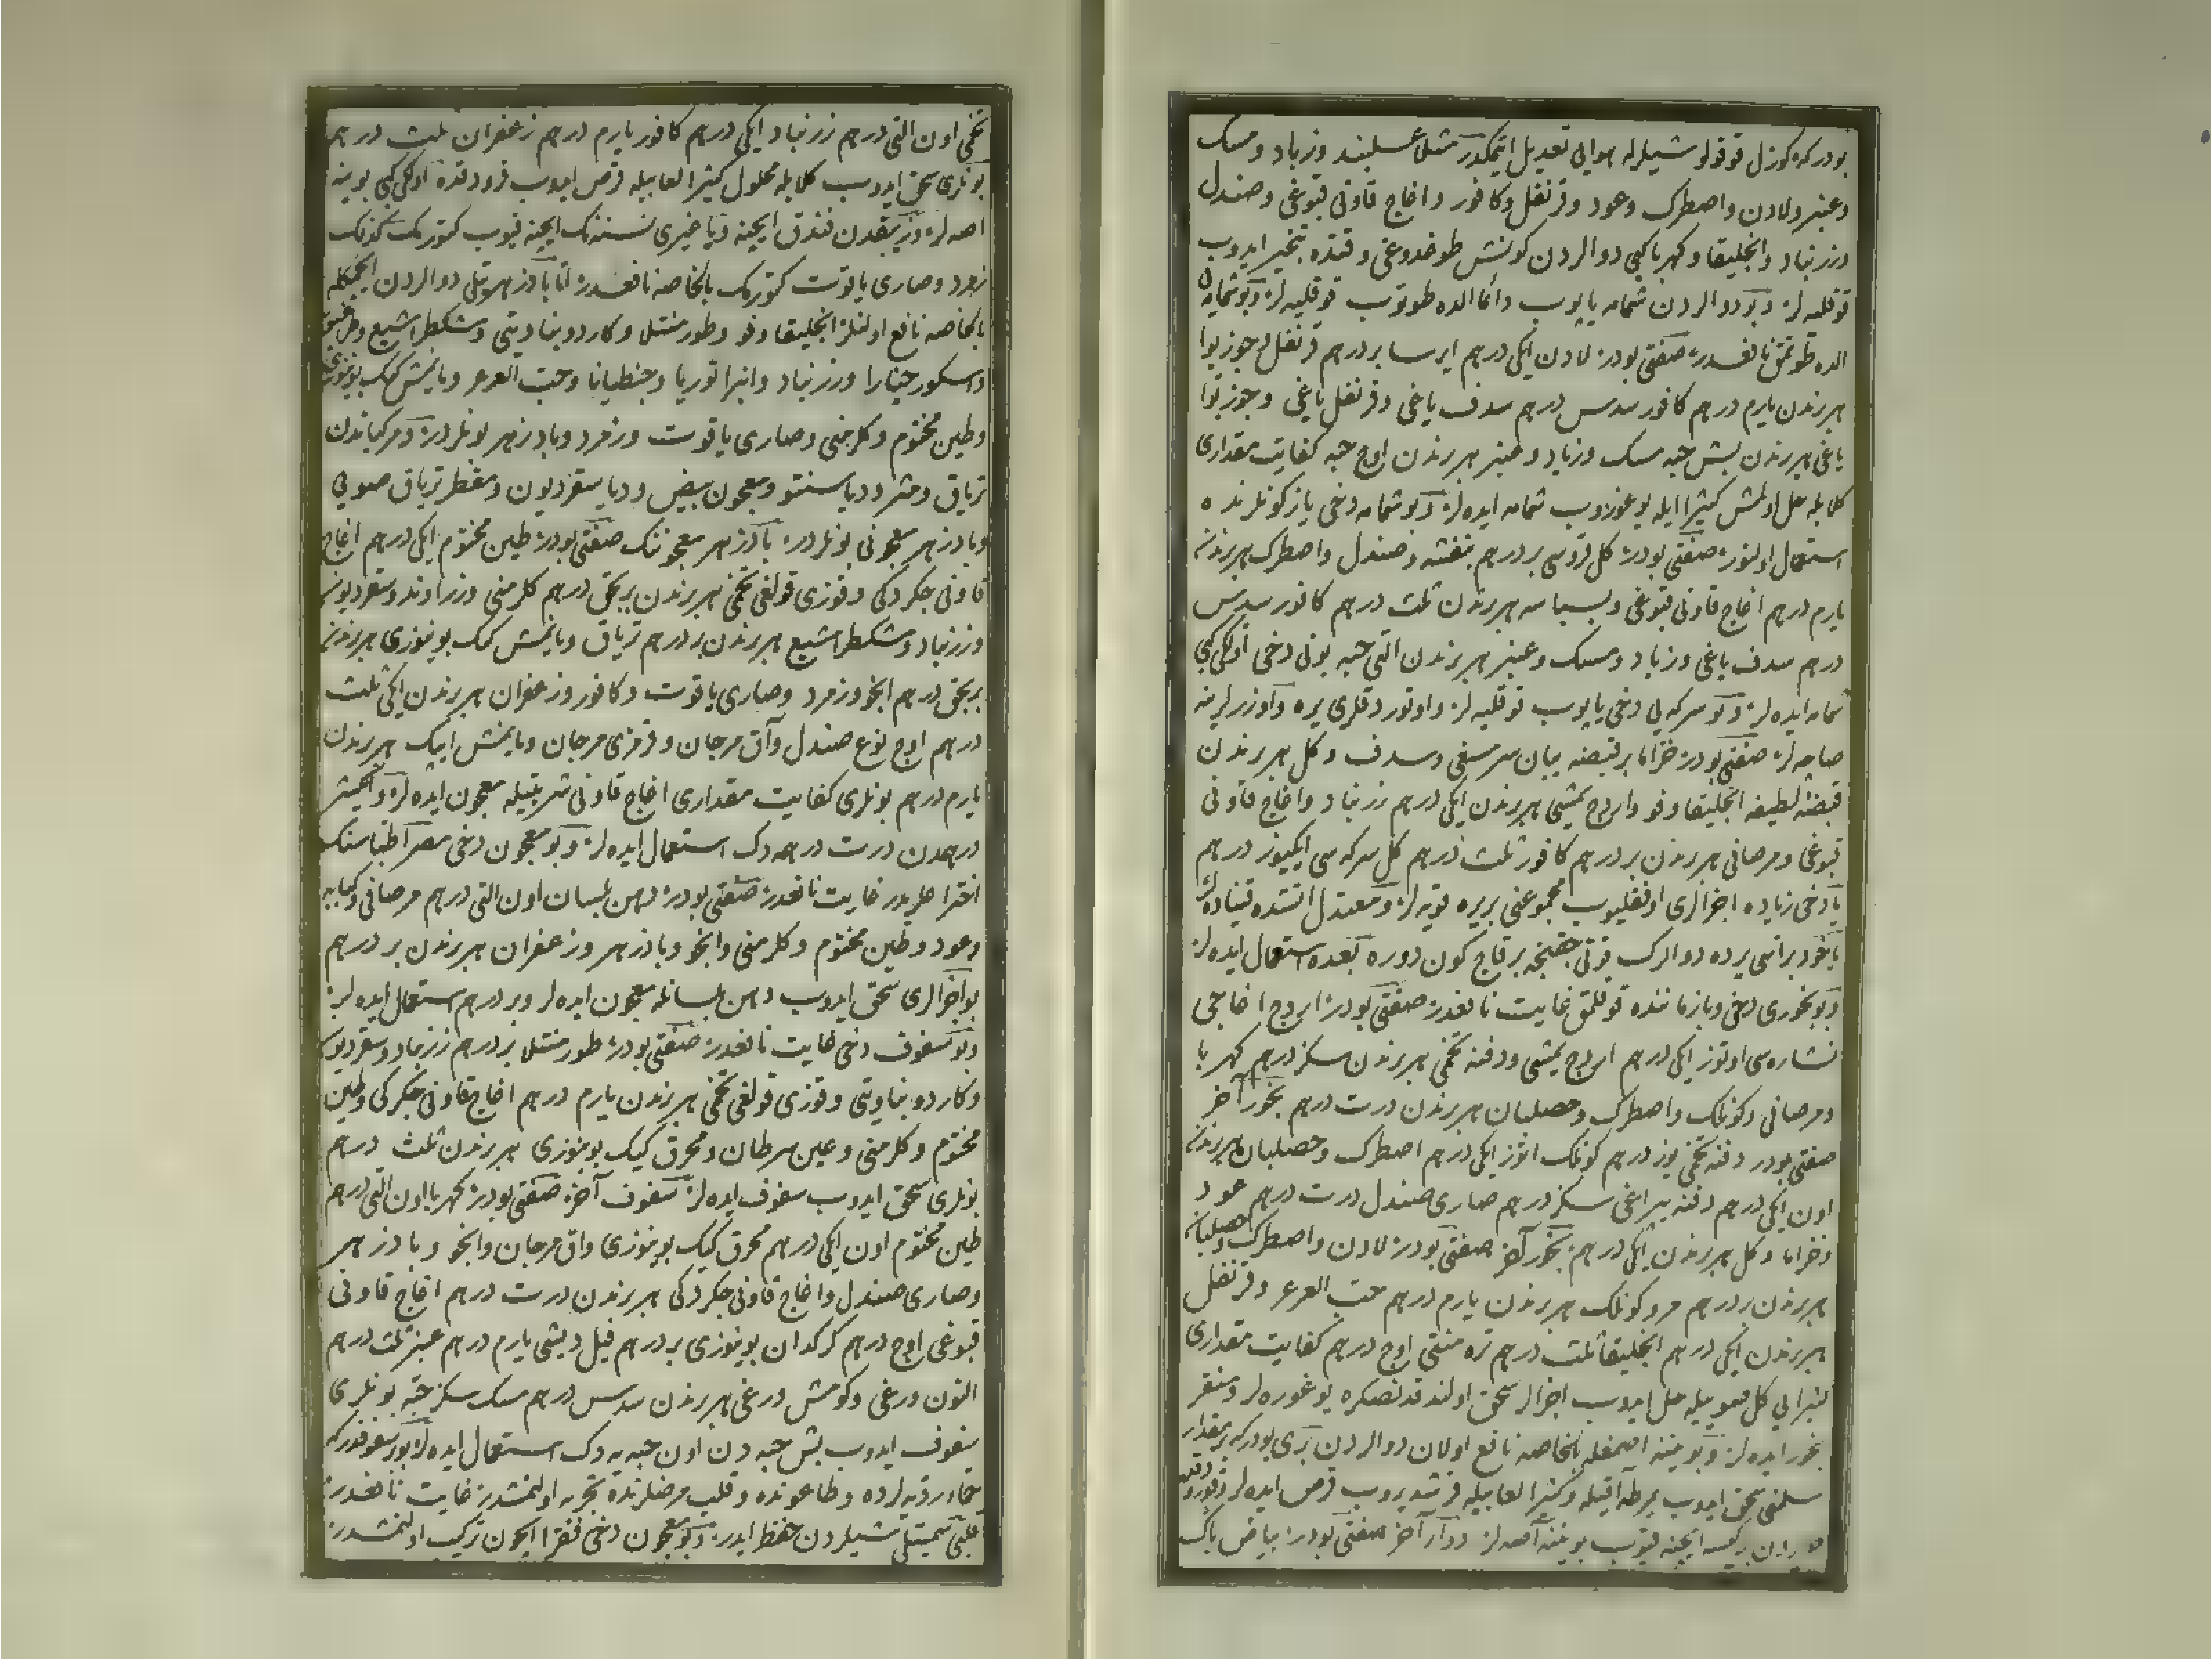 بودركه كوزل قوقولو شيلرله هوايى تعديل ايتمكدر مثلا عسلبند وزباد ومسك
وعنبر ولادن واصطرك وعود وقرنفل وكافور واغاج قاونى قبوغى وصندل
وزرنباد وانجليقا وكهربا كبى دوالردن كونش طوغدوغى وقتده تبخير ايدوب
قوقليه لر وبو دوالردن شمامه ياپوب دائما الده طوتوب قوقليه لر وبو شمامه يى
الده طوتمق نافعدر صفتى بودر لادن ايكى درهم ايرسا بر درهم قرنفل وجوز بوا
هر برندن يارم درهم كافور سدس درهم سدف ياغى وقرنفل ياغى وجوز بوا
ياغى هر برندن بش حبه مسك وزباد وعنبر هر برندن اوچ حبه كفايت مقدارى
كلابله حل اولمش كثيرا ايله يوغوروب شمامه ايده لر وبو شمامه دخى ياز كونلرنده
استعمال اولنور صفتى بودر كل قروسى بر درهم بنفشه وصندل واصطرك هر برندن
يارم درهم اغاج قاونى قبوغى وبسباسه هر برندن ثلث درهم كافور سدس
درهم سدف ياغى وزباد ومسك وعنبر هر برندن التى حبه بونى دخى اولكى كبى
شمامه ايده لر وبو سركه يى دخى ياپوب قوقليه لر واوتوردقلرى يره واوزرلرينه
صاچه لر صفتى بودر خزاما بر قبضه يبان سرمسغى وسدف وكل هر برندن
قبضه لطيفه انجليقا وفو واردج يمشى هر برندن ايكى درهم زرنباد واغاج قاونى
قبوغى ومرصافى هر برندن بر درهم كافور ثلث درهم كل سركه سى ايكيوز درهم
يا دخى زياده اجزالرى اوفقليوب مجموعنى بر يره قويه لر ومعتدل اتشده قيناده لر
ياخود بر اسى يرده دوالرك قوتى چقنجه بر قاچ كون دوره بعده استعمال ايده لر
وبو بخورى دخى وبا زماننده قوقلمق غايت نافعدر صفتى بودر اردج اغاجى
نشاره سى اوتوز ايكى درهم اردج يمشى ودفنه تخمى هر برندن سكز درهم كهربا
ومرصافى وكونلك واصطرك وحصلبان هر برندن درت درهم بخور آخر
صفتى بودر دفنه تخمى يوز درهم كونلك اتوز ايكى درهم اصطرك وحصلبان هر برندن
اون ايكى درهم دفنه يپراغى سكز درهم صارى صندل درت درهم عود
وخزاما وكل هر برندن ايكى درهم بخور آخر صفتى بودر لادن واصطرك وحصلبان
هر برندن بر درهم مر وكونلك هر برندن يارم درهم حب العرعر وقرنفل
هر برندن ايكى درهم انجليقا ثلث درهم تره منتى اوچ درهم كفايت مقدارى
كثيرايى كل صوييله حل ايدوب اجزالر سحق اولندقدنصكره يوغوره لر ومنقر
بخور ايده لر وبوينه اصمغله بالخاصه نافع اولان دوالردن برى بودركه بر مقدار
سلمنى سحق ايدوب بر طه اقيله وكثيرا لعابيله قرشديروب قرص ايده لر وقوروده
بر كيسه ايچنه قيوب بوينه آصه لر دوآر آخر صفتى بودر بياض باك
تخمى اون التى درهم زرنباد ايكى درهم كافور يارم درهم زعفران ثلث درهم
بونلرى سحق ايدوب كلابله محلول كثيرا لعابيله قرص ايدوب قرودقده اولكى كبى بوينه
اصه لر وزيبقدن فندق ايچنه ويا غيرى نسنه نك ايچنه قيوب كتورمك كرك
زمرد وصارى ياقوت كتورمك بالخاصه نافعدر اما بادزهرتلى دوالردن ايچمكله
بالخاصه نافع اولنلر انجليقا وفو وطورمنتلا وكاردو بنادقتى ومشكطرامشيع
واسكورجنارا وزرنباد وانبراتوريا وجنطيانا وحب العرعر ويانمش كيك بوينوزى
وطين مختوم وكلرمنى وصارى ياقوت وزمرد وبادزهر بونلردر ومركباتدن
ترياق ومثروديا سنتو ومعجون بيض وديا سقرديون ومقطر ترياق صويى
وبادزهر معجونى بونلردر بادزهر معجوننك صفتى بودر طين مختوم ايكى درهم اغاج
قاونى جكردكى وقوزى قولغى تخمى هر برندن بر بچق درهم كلرمنى وزراوند وسقرديون
وزرنباد ومشكطرامشيع هر برندن بر درهم ترياق ويانمش كيك بوينوزى هر برندن
بر بچق درهم انجو وزمرد وصارى ياقوت وكافور وزعفران هر برندن ايكى ثلث
درهم اوچ نوع صندل وآق مرجان وقرمزى مرجان ويانمش ايپك هر برندن
يارم درهم بونلرى كفايت مقدارى اغاج قاونى شربتيله معجون ايده لر وايكيشر
درهمدن درت درهمه دك استعمال ايده لر وبو معجون دخى مصر اطباسنك
اختراعلريدر غايت نافعدر صفتى بودر دهن بلسان اون التى درهم مرصافى وكبابه
وعود وطين مختوم وكلرمنى وانجو وبادزهر وزعفران هر برندن بر درهم
بو اجزالرى سحق ايدوب دهن بلسانله معجون ايده لر وبر درهم استعمال ايده لر
وبو سفوف دخى غايت نافعدر صفتى بودر طورمنتلا بر درهم زرنباد وسقرديون
وكاردو بنادقتى وقوزى قولغى تخمى هر برندن يارم درهم اغاج قاونى جكركى وطين
مختوم وكلرمنى وعين سرطان ومحرق كيك بوينوزى هر برندن ثلث درهم
بونلرى سحق ايدوب سفوف ايده لر سفوف آخر صفتى بودر كهربا اون التى درهم
طين مختوم اون ايكى درهم محرق كيك بوينوزى واق مرجان وانجو وبادزهر
وصارى صندل واغاج قاونى جكردكى هر برندن درت درهم اغاج قاونى
قبوغى اوچ درهم كركدان بوينوزى بر درهم فيل ديشى يارم درهم عنبر ثلث درهم
التون ورغى وكومش ورغى هر برندن سدس درهم مسك سكز حبه بونلرى
سفوف ايدوب بش حبه دن اون حبه يه دك استعمال ايده لر بو سفوفدركه
حماء رديه لرده وطاعونده وقلب مرضلرنده تجربه اولنمشدر غايت نافعدر
قلبى سميتلى شيلردن حفظ ايدر وبو معجون دخى فقرا ايچون تركيب اولنمشدر